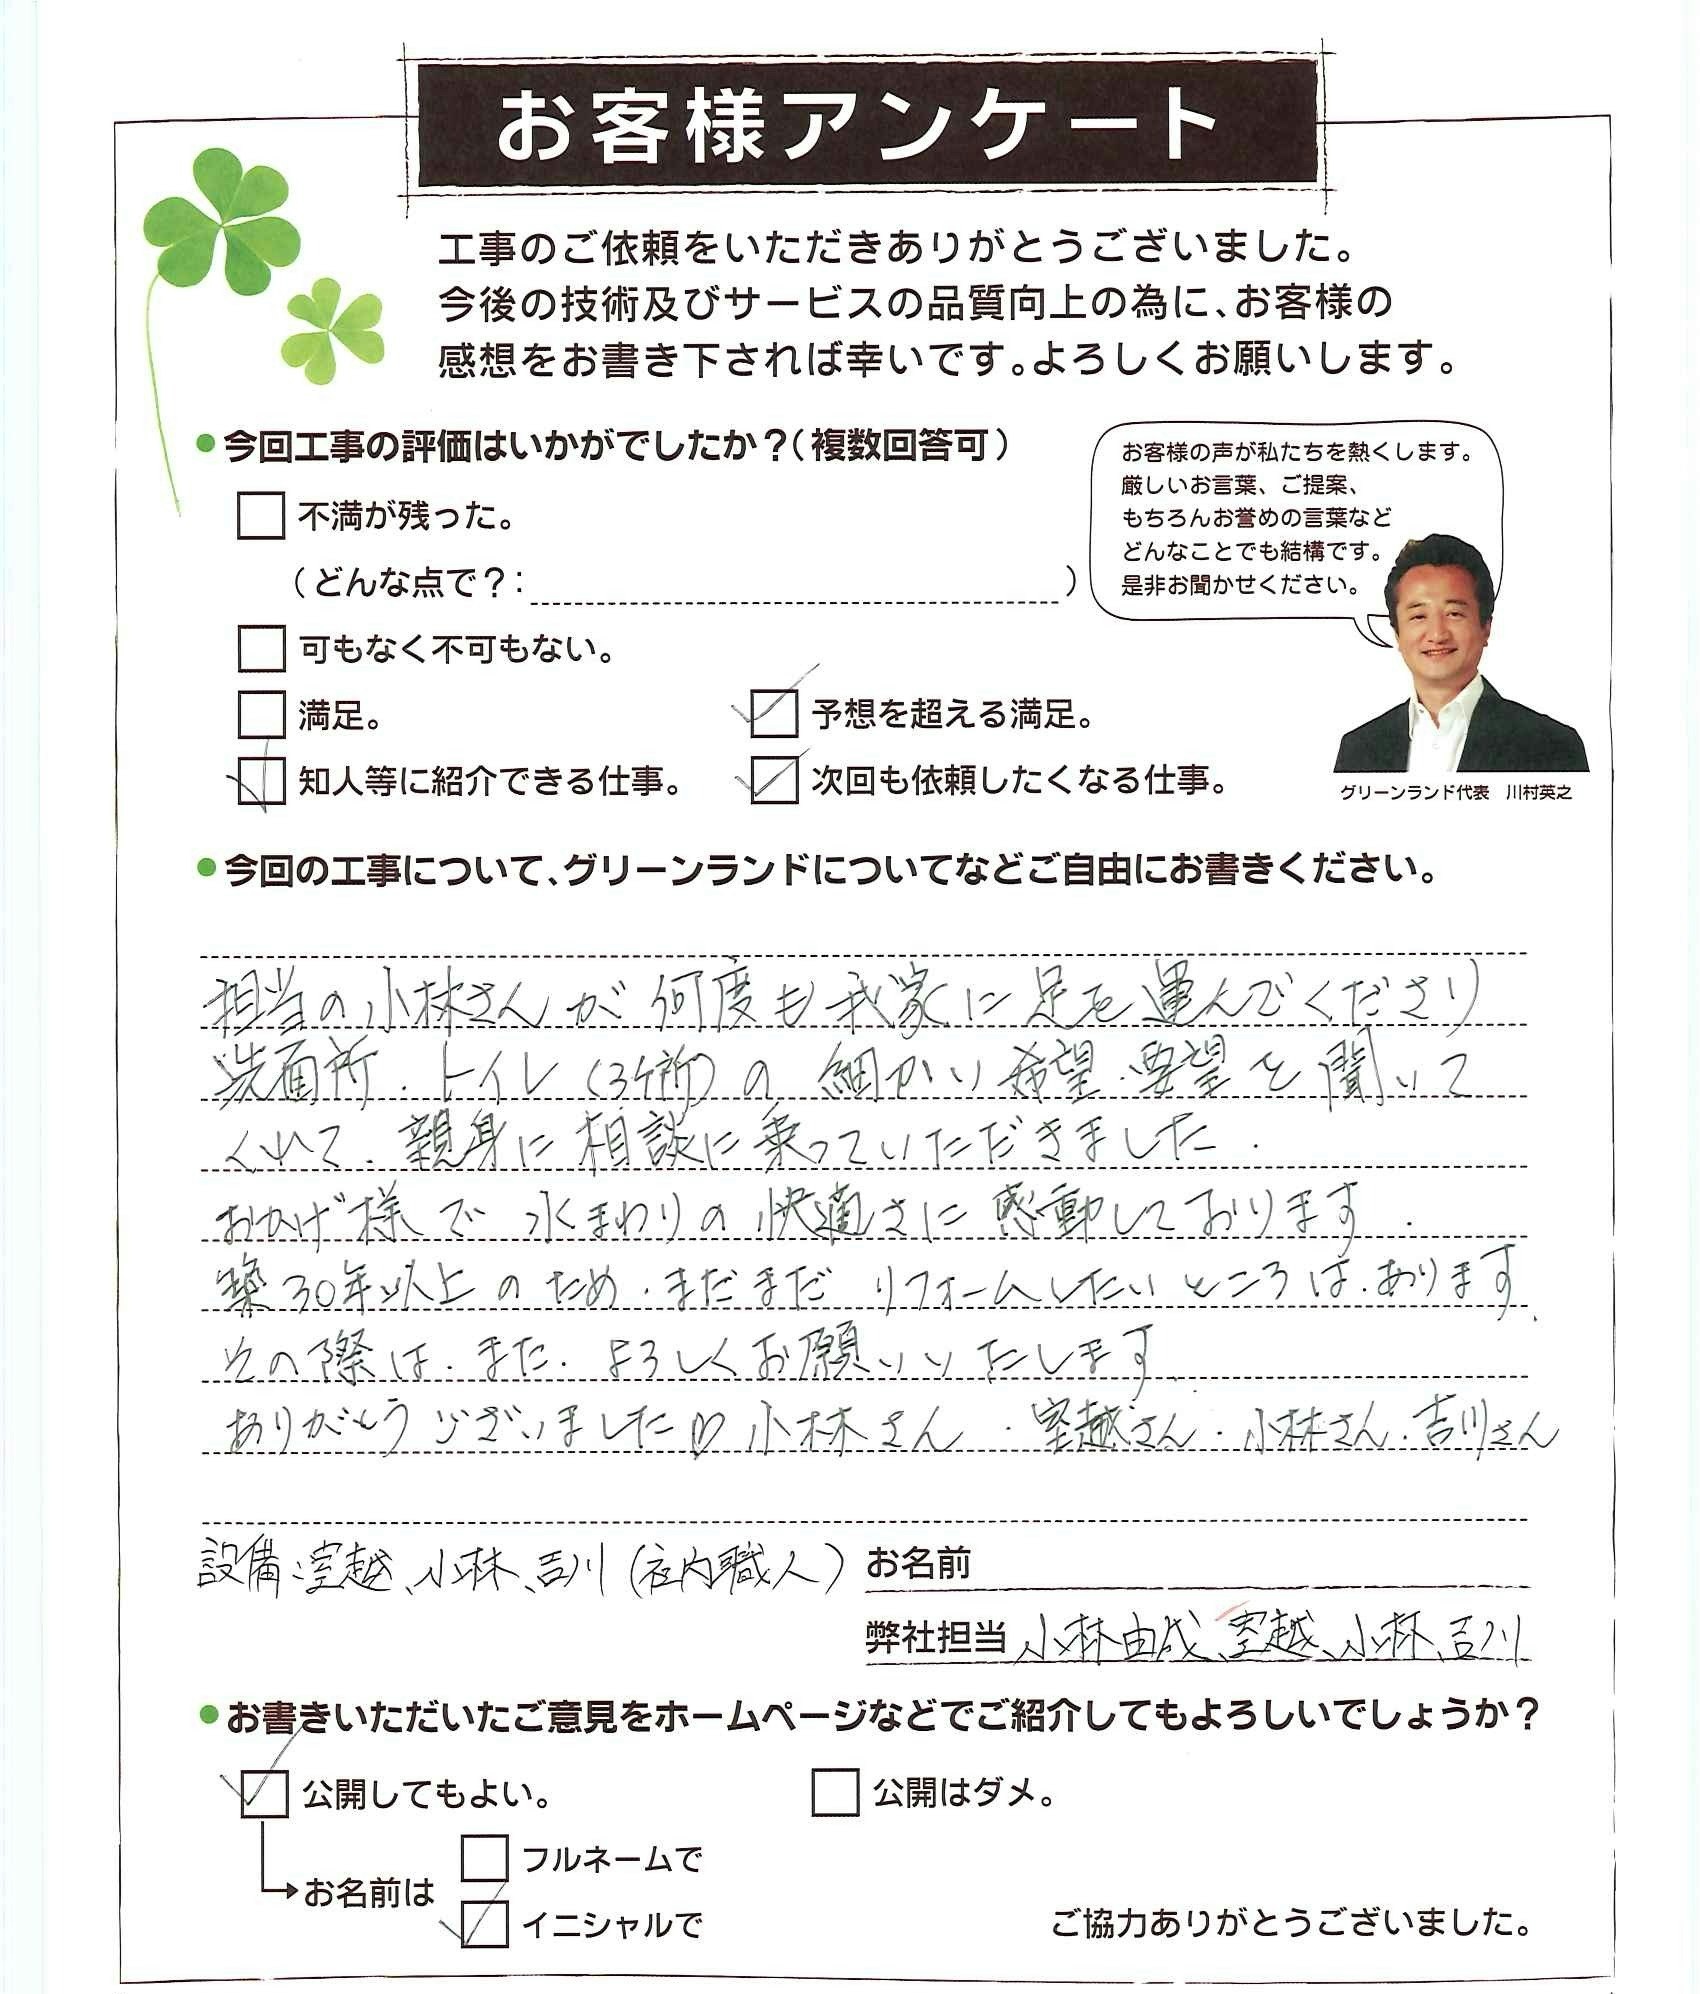 お客様アンケート
工事のご依頼をいただきありがとうございました。
今後の技術及びサービスの品質向上の為に、お客様の
感想をお書き下されば幸いです。よろしくお願いします。
●今回工事の評価はいかがでしたか？（複数回答可）
お客様の声が私たちを熱くします。
厳しいお言葉、ご提案、
もちろんお誉めの言葉など
どんなことでも結構です。
是非お聞かせください。
不満が残った。
（どんな点で？：）
可もなく不可もない。
満足。
予想を超える満足。
知人等に紹介できる仕事。
次回も依頼したくなる仕事。
グリーンランド代表　川村英之
●今回の工事について、グリーンランドについてなどご自由にお書きください。
担当の小林さんが 何度も我家に足を運んでくださり
洗面所．トイレ（3ヶ所）の 細かい希望．要望を聞いて
くれて．親身に相談に乗っていただきました．
おかげ様で 水まわりの快適さに感動しております．
築30年以上のため．まだまだ リフォームしたいところは．あります．
その際は．また．よろしくお願いいたします．
ありがとうございました♡小林さん．室越さん．小林さん．吉川さん
設備：室越、小林、吉川（社内職人）
お名前
弊社担当 小林由成、室越、小林、吉川
●お書きいただいたご意見をホームページなどでご紹介してもよろしいでしょうか？
公開してもよい。
公開はダメ。
お名前は
フルネームで
イニシャルで
ご協力ありがとうございました。